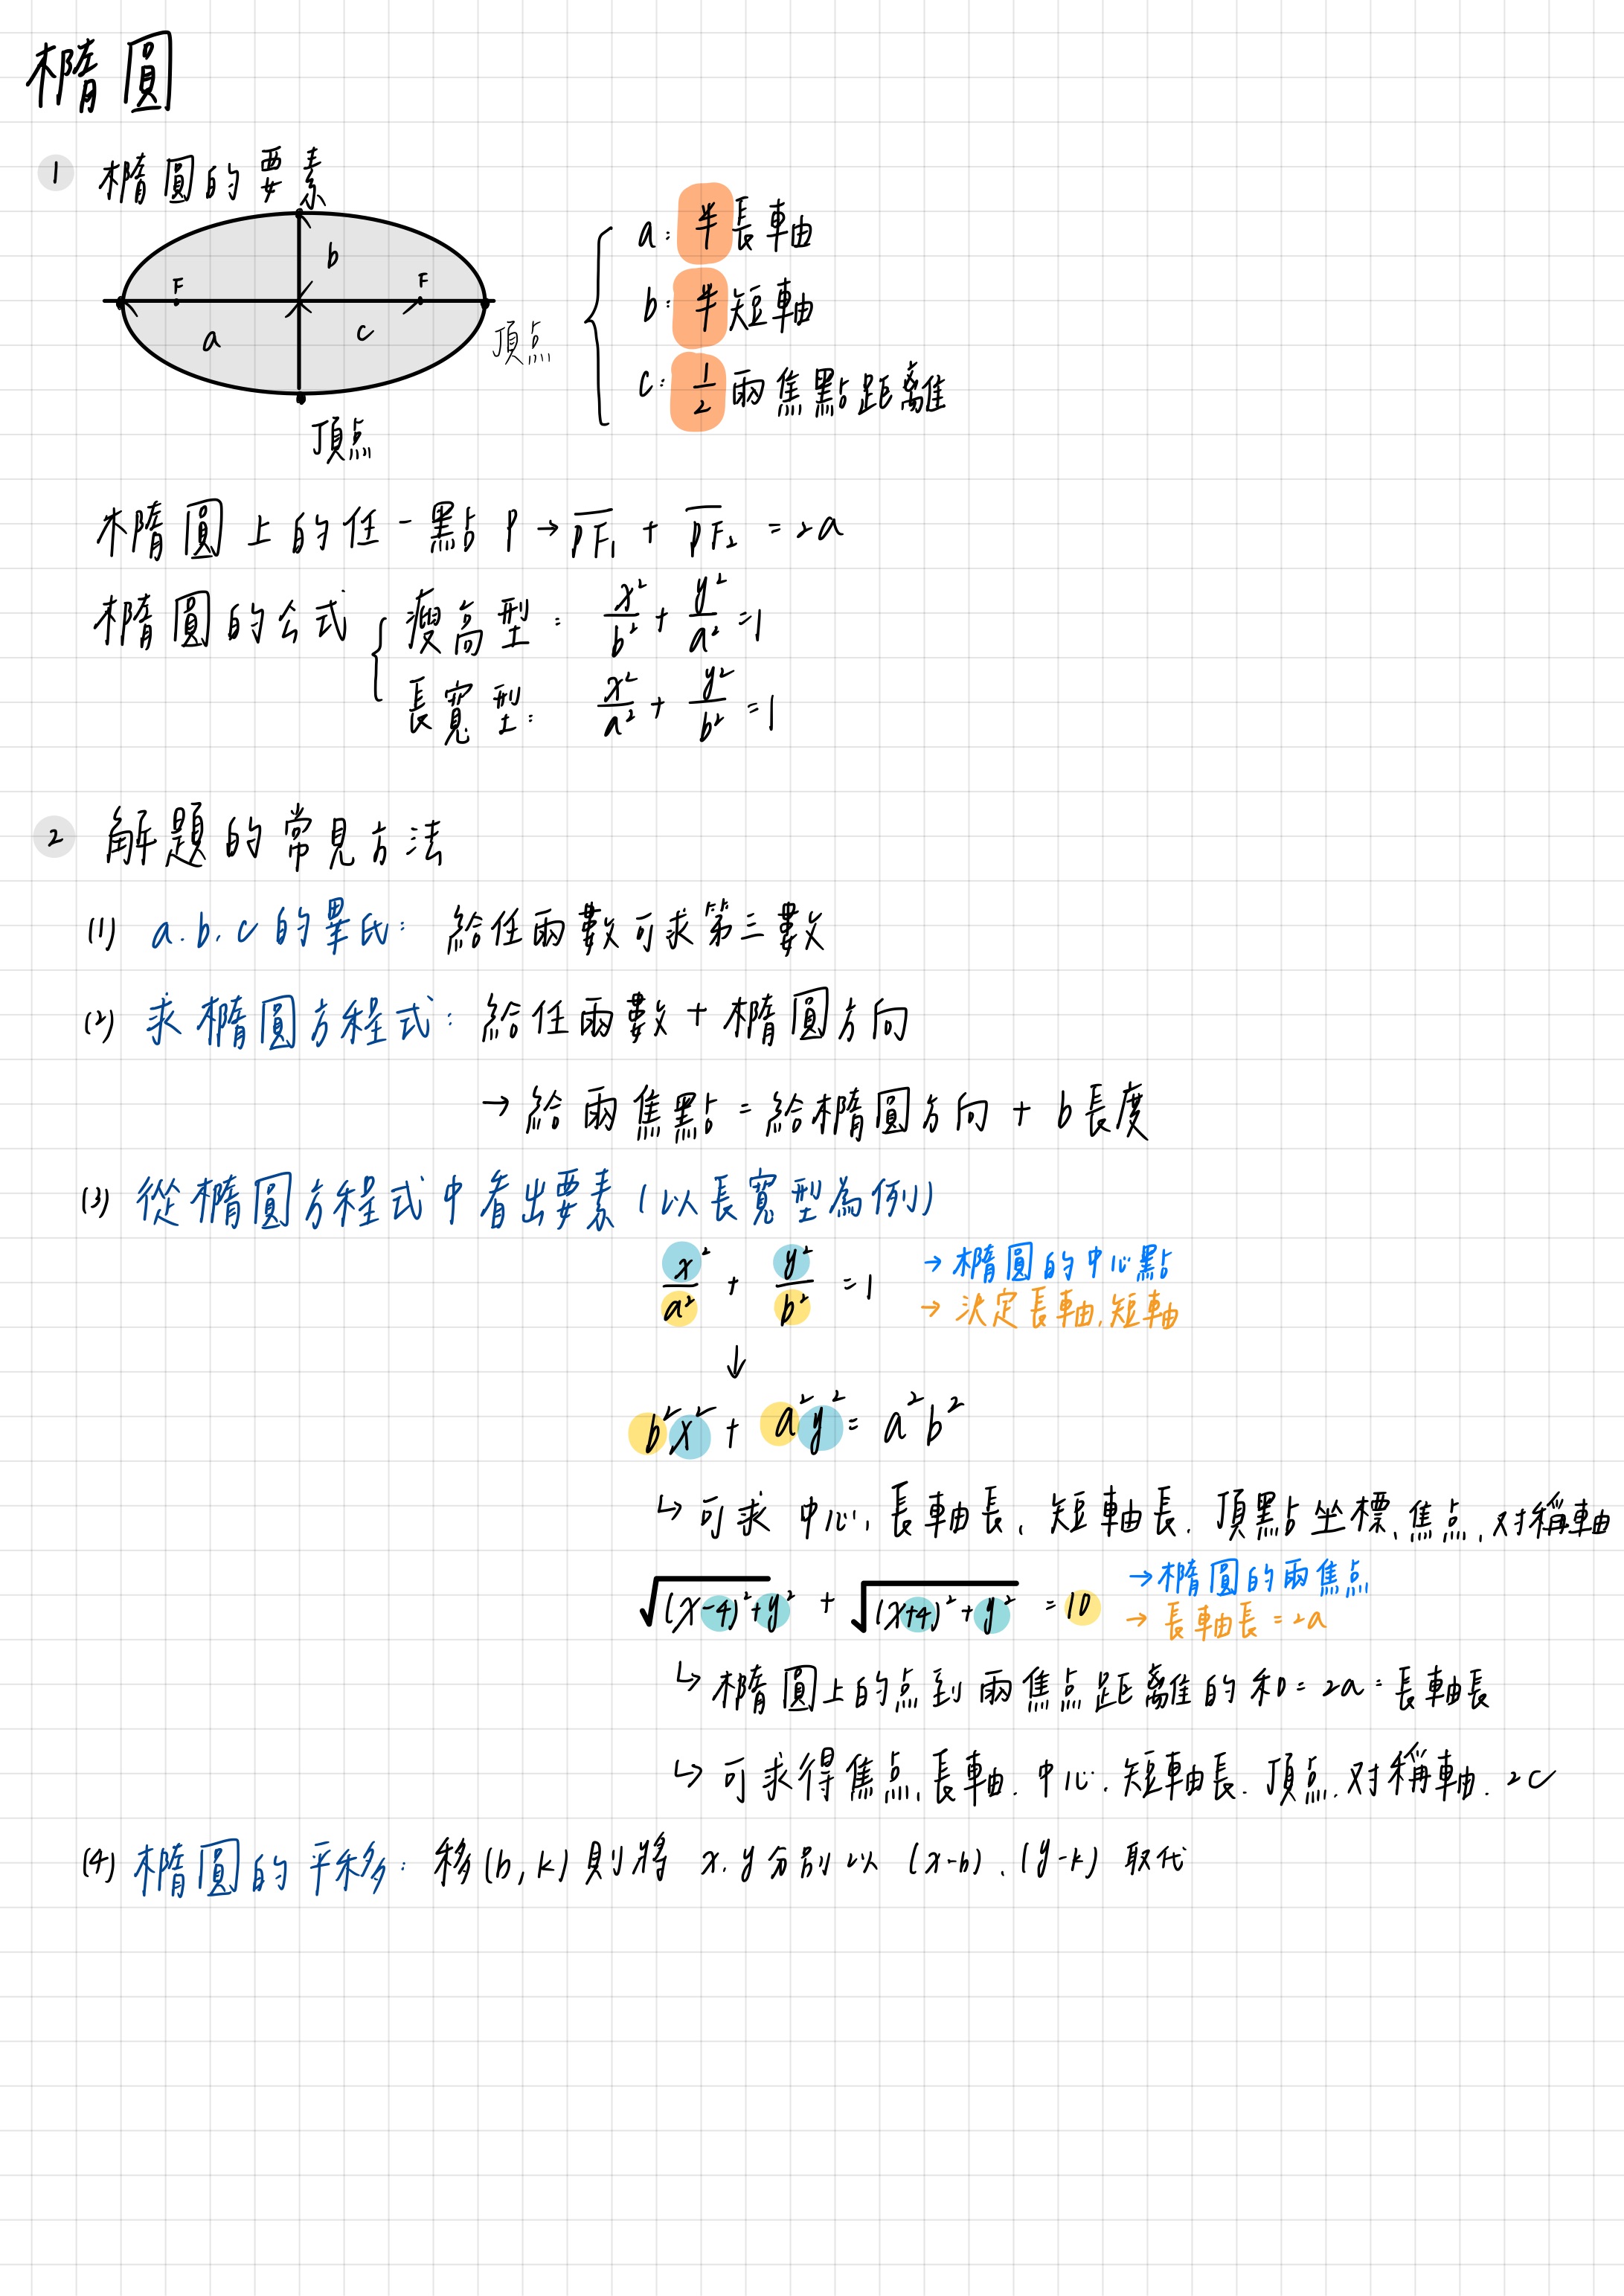 橢圓
1 橢圓的要素
b
F F
a c
頂点
頂点
a:半長軸
b:半短軸
c:1/2兩焦點距離
橢圓上的任一點P→PF₁ + PF₂ = 2a
橢圓的公式
瘦高型: x²/b² + y²/a² = 1
長寬型: x²/a² + y²/b² = 1
2 解題的常見方法
(1) a.b.c的畢氏: 給任兩數可求第三數
(2) 求橢圓方程式: 給任兩數+橢圓方向
→給兩焦點=給橢圓方向+b長度
(3) 從橢圓方程式中看出要素(以長寬型為例)
x²/a² + y²/b² = 1
→橢圓的中心點
→決定長軸.短軸
↓
b²x² + a²y² = a²b²
↳可求 中心、長軸長、短軸長、頂點坐標、焦点、对稱軸
√(x-4)²+y² + √(x+4)²+y² = 10
→橢圓的兩焦点
→長軸長=2a
↳橢圓上的点到兩焦点距離的和=2a=長軸長
↳可求得焦点.長軸.中心.短軸長.頂点.对稱軸.2c
(4) 橢圓的平移: 移(h,k)則將 x.y分別以 (x-h)、(y-k) 取代